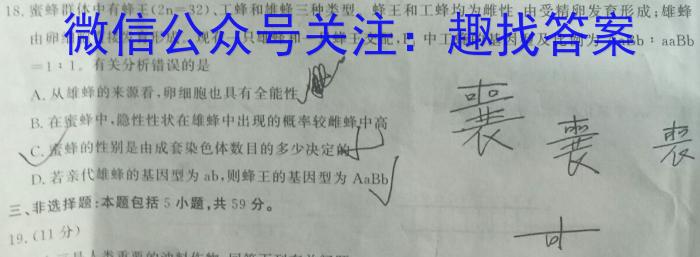 18. 蜜蜂群体中有蜂王(2n=32)、工蜂和雄蜂三种类型。蜂王和工蜂均为雌性,由受精卵发育形成;雄蜂
由卵细
微信公众号关注:趣找答案
aBb:aaBb
=1:1。有关分析错误的是
A. 从雄蜂的来源看,卵细胞也具有全能性
B. 在蜜蜂中,隐性性状在雄蜂中出现的概率较雌蜂中高
C. 蜜蜂的性别是由成套染色体数目的多少决定的
D. 若亲代雄蜂的基因型为 ab,则蜂王的基因型为 AaBb
三、非选择题:本题包括 5 小题,共 59 分。
19. (11 分)